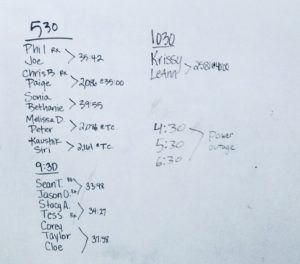 530
Phil Rx
Joe 35:42
Chris B. Rx
Paige 2,086 @35:00
Sonia
Bethanie 39:55
Melissa D.
Peter RTC
Kaustek
Siri RTC
9:30
Sean T.
Jason O. 33:48
Stacy A.
Tess Rx 34:27
Corey
Taylor 37:58
Cloe
1030
Krissy
LeAnn
4:30
5:30 Power
6:30 outage